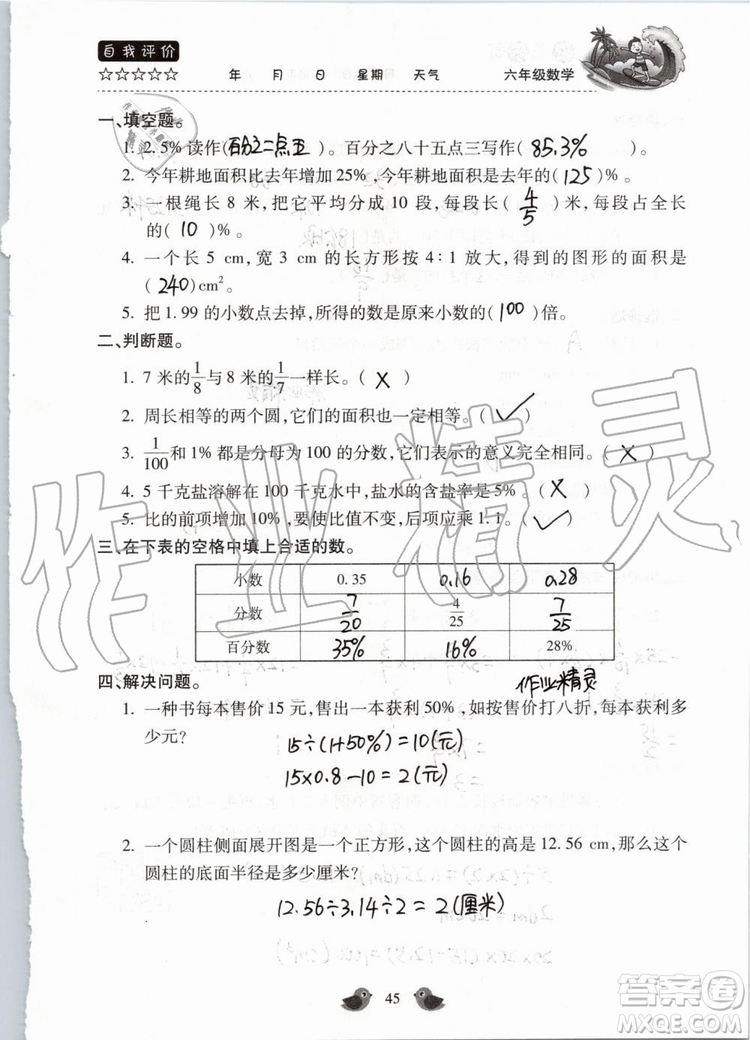 自我评价
☆☆☆☆☆ 年 月 日 星期 天气 六年级数学
一、填空题。
1. 2.5%读作(百分之二点五)。百分之八十五点三写作(85.3%)。
2. 今年耕地面积比去年增加25%,今年耕地面积是去年的(125)%。
3. 一根绳长8米,把它平均分成10段,每段长(4/5)米,每段占全长
的(10)%。
4. 一个长5 cm,宽3 cm的长方形按4∶1放大,得到的图形的面积是
(240)cm²。
5. 把1.99的小数点去掉,所得的数是原来小数的(100)倍。
二、判断题。
1. 7米的1/8与8米的1/7一样长。(×)
2. 周长相等的两个圆,它们的面积也一定相等。(✓)
3. 1/100和1%都是分母为100的分数,它们表示的意义完全相同。(×)
4. 5千克盐溶解在100千克水中,盐水的含盐率是5%。(×)
5. 比的前项增加10%,要使比值不变,后项应乘1.1。(✓)
三、在下表的空格中填上合适的数。
小数 0.35 0.16 0.28
分数 7/20 4/25 7/25
百分数 35% 16% 28%
四、解决问题。 作业精灵
1. 一种书每本售价15元,售出一本获利50%,如按售价打八折,每本获利多
少元?
15÷(1+50%)=10(元)
15×0.8-10=2(元)
2. 一个圆柱侧面展开图是一个正方形,这个圆柱的高是12.56 cm,那么这个
圆柱的底面半径是多少厘米?
12.56÷3.14÷2=2(厘米)
45
作业精灵
答案圈
MXQE.COM